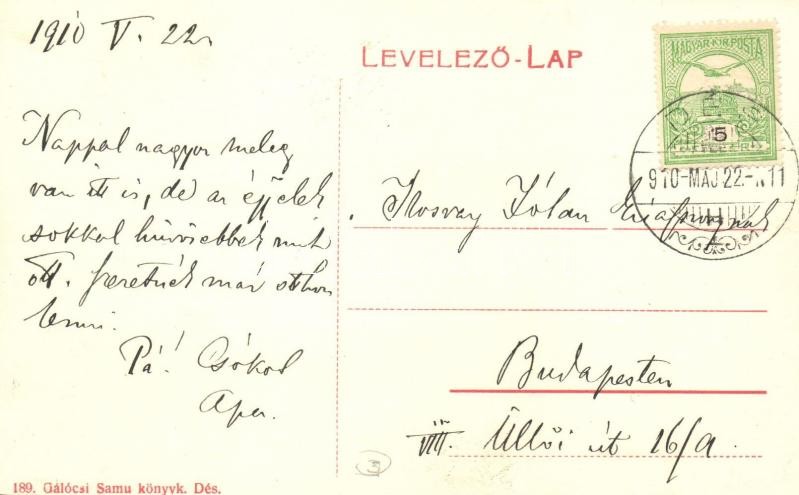 1910 V. 22.
LEVELEZŐ-LAP
MAGYAR·KIR·POSTA
5
DÉS
910-MAJ.22.-N.11
Nappal nagyon meleg
van itt is, de az éjjelek
sokkal hűvösebbek mint
ott. Szeretnék már otthon
lenni.
Pá! Csókol
Apa.
Ilosvay Zólán
Budapesten
VIII. Üllői út 16/a.
3
189. Gálócsi Samu könyvk. Dés.